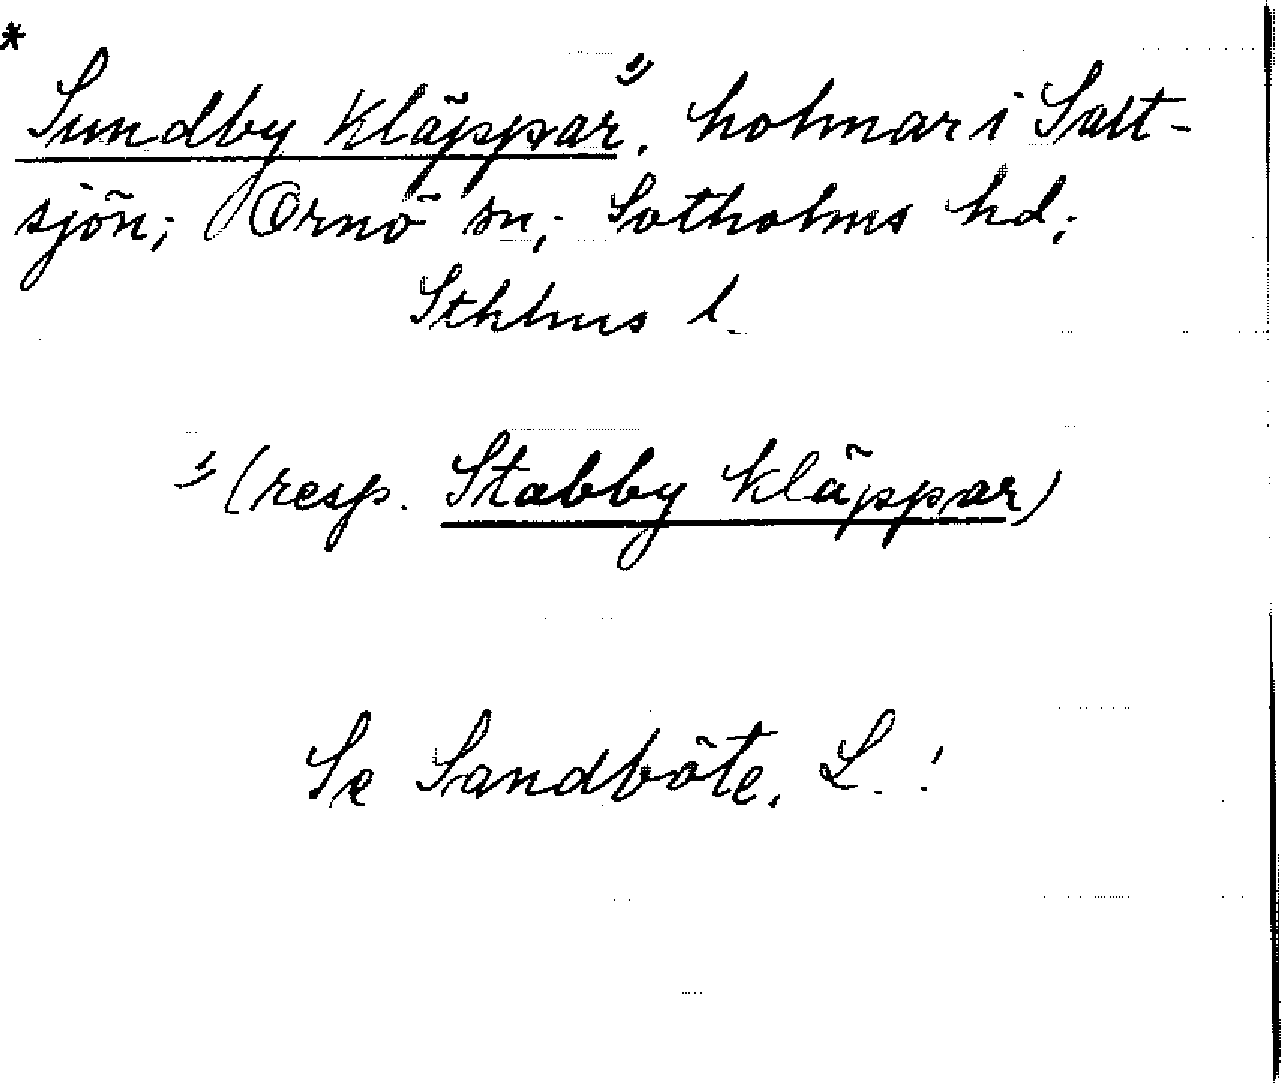 *
Sundby Kläppar¹⁾, holmar i Salt-
sjön; Ornö sn; Sotholms hd;
Sthlms l.
¹⁾ (resp. Stabby Kläppar)
Se Sandböte, L. !